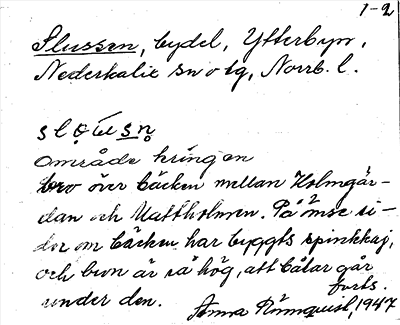 1-2
Slussen, bydel, Ytterbyn,
Nederkalix sn o tg, Norrb. l.
område kring en
bro över bäcken mellan Holmgår-
dan och Mattholmen. På ömse si-
der om bäcken har byggts spinkkaj,
och bron är så hög, att båtar går
under den.
forts.
Anna Rönnquist, 1947